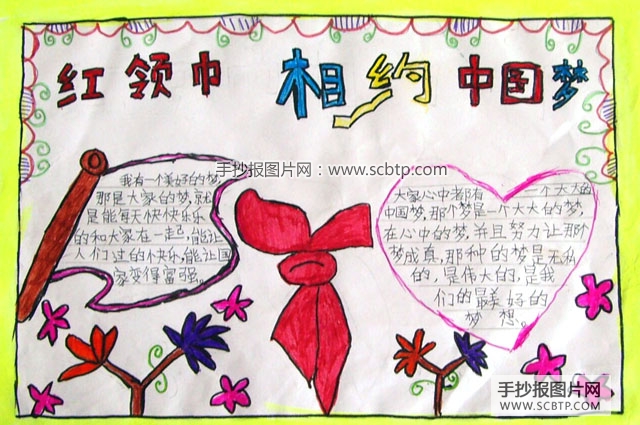 红领巾 相约 中国梦
手抄报图片网:www.scbtp.com
我有一个美好的梦,
那是大家的梦,就
是能每天快快乐乐
的和大家在一起,能让
人们过的个快乐,能让国
家变得富强。
大家心中都有一个大大的
中国梦,那个梦是一个大大的梦,
在心中的梦,并且努力让那个
梦成真,那种的梦是无私
的,是伟大的,是我
们的最美好的
梦想。
手抄报图片网
WWW.SCBTP.COM